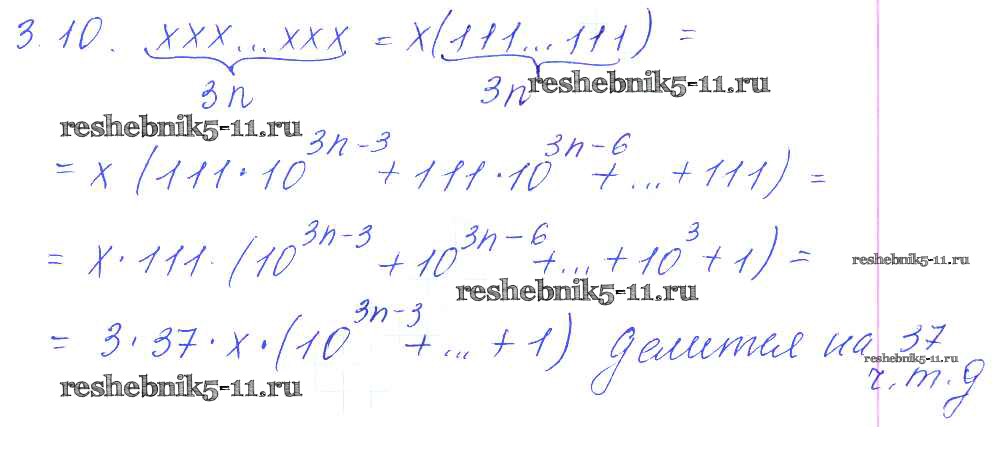 3.10. xxx...xxx = x(111...111) =
3n 3n reshebnik5-11.ru
reshebnik5-11.ru
= x (111·10^{3n-3} + 111·10^{3n-6} + ... + 111) =
= x·111·(10^{3n-3} + 10^{3n-6} + ... + 10^3 + 1) = reshebnik5-11.ru
reshebnik5-11.ru
= 3·37·x·(10^{3n-3} + ... + 1) делится на 37
reshebnik5-11.ru
reshebnik5-11.ru ч.т.д